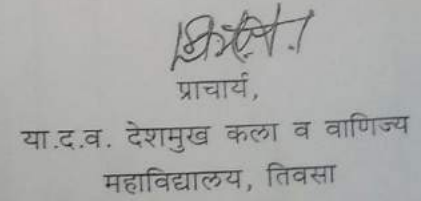 प्राचार्य,
या.द.व. देशमुख कला व वाणिज्य
महाविद्यालय, तिवसा